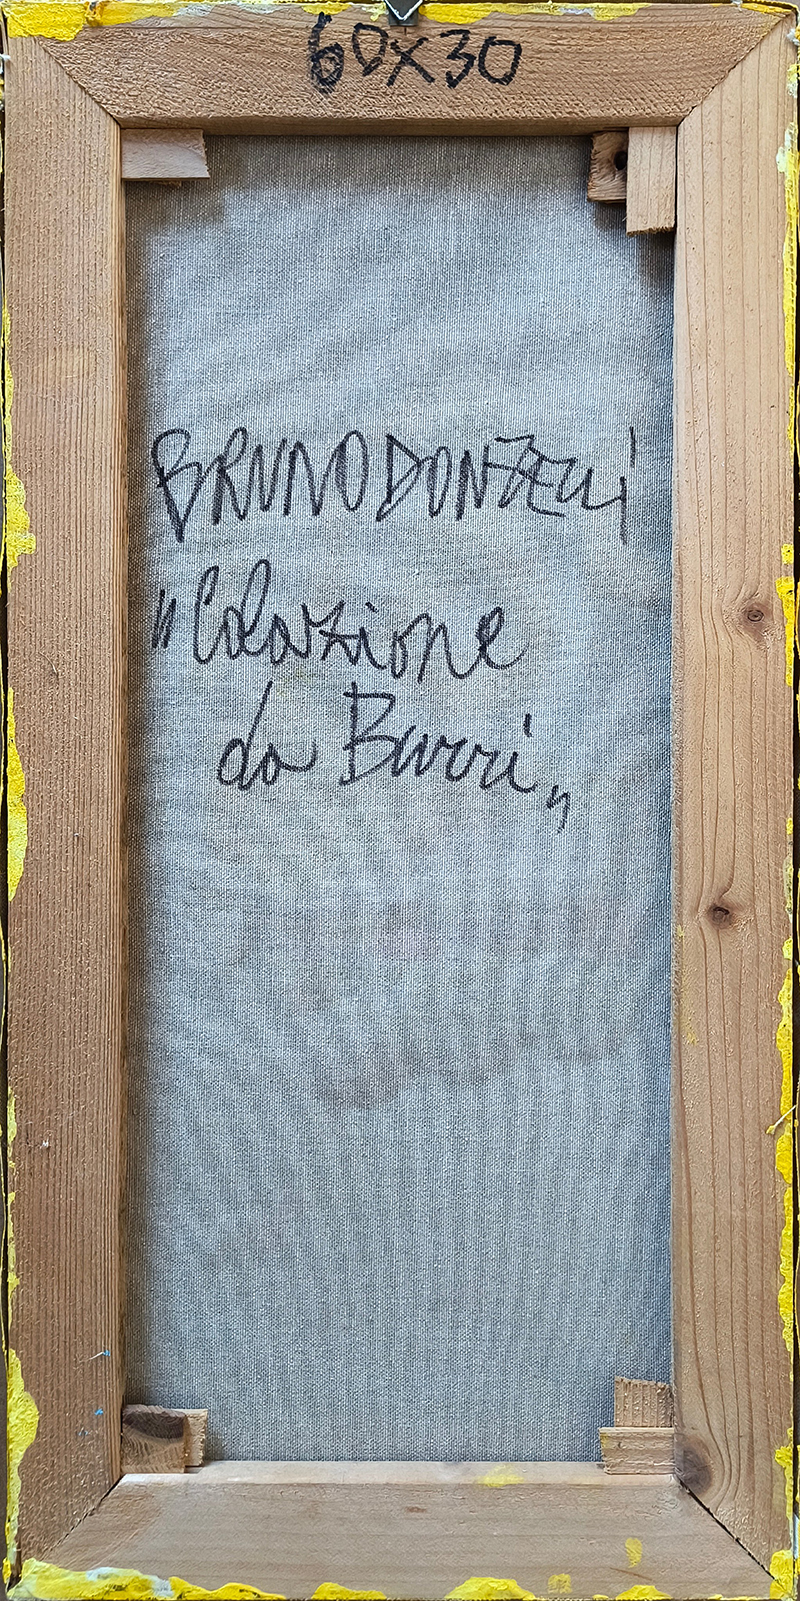 60x30
BRUNO DONZELLI
"Colazione
da Burri"